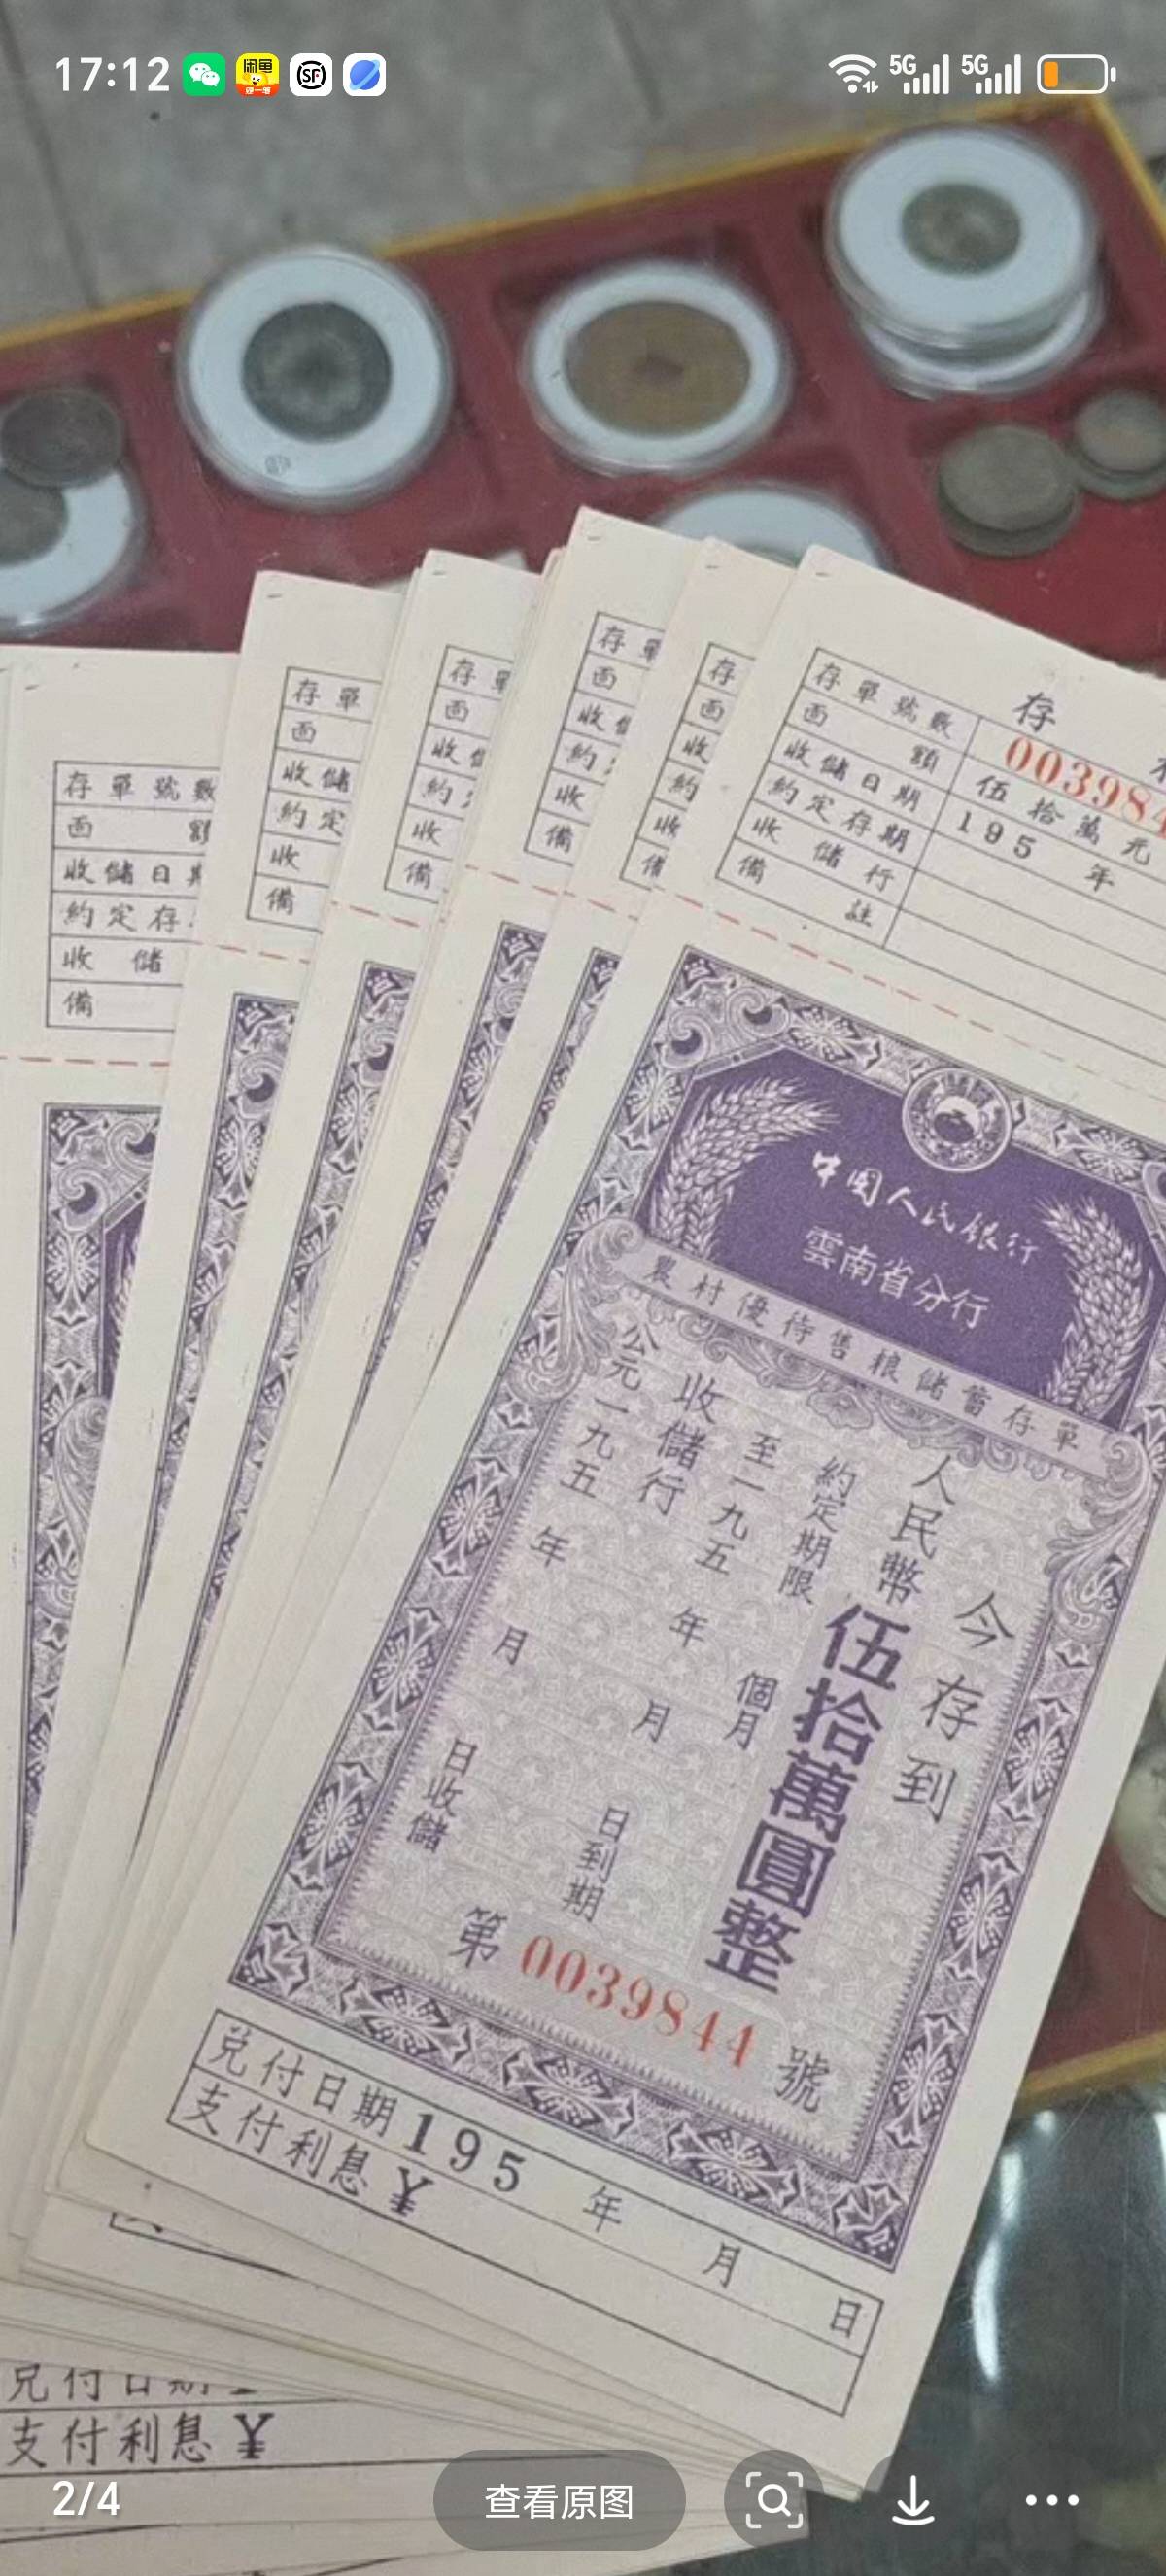 17:12
闲鱼
SF
5G
5G
存單號數
面
收儲
約定
收
備
存單
面
收儲
約定
收
備
存
面
收
約
收
備
存
面
收
約
收
備
存
面
收
約
收
備
存
存單號數 003984
面額 伍拾萬元
收儲日期 195 年
約定存期
收儲行
備註
中國人民銀行
雲南省分行
農村優待售粮儲蓄存單
今存到
人民幣伍拾萬圓整
約定期限 個月
至一九五 年 月 日到期
收儲行
公元一九五 年 月 日收儲
第 0039844 號
兑付日期 195 年 月 日
支付利息 ¥
兑付日期
支付利息 ¥
2/4
查看原图